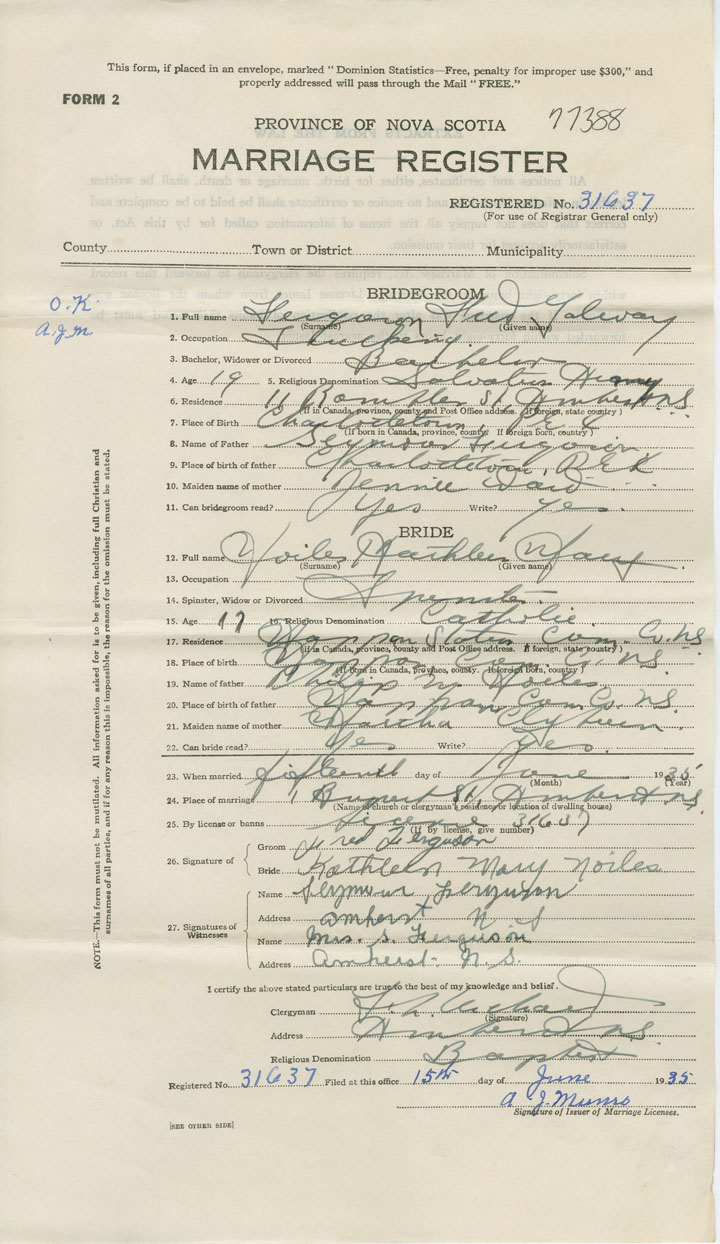 This form, if placed in an envelope, marked "Dominion Statistics—Free, penalty for improper use $300," and
properly addressed will pass through the Mail "FREE."
FORM 2
PROVINCE OF NOVA SCOTIA 77388
MARRIAGE REGISTER
REGISTERED No. 31637
(For use of Registrar General only)
County Town or District Municipality
O.K.
A.J.M
BRIDEGROOM
1. Full name Ferguson Fred
(Surname) (Given name)
2. Occupation
3. Bachelor, Widower or Divorced Bachelor
4. Age 19 5. Religious Denomination Salvation Army
6. Residence 11 St. Amherst NS
(If in Canada, province, county and Post Office address. If foreign, state country)
7. Place of Birth Charlottetown, P.E.I
(If born in Canada, province, county. If foreign born, country)
8. Name of Father Seymour Ferguson
9. Place of birth of father Charlottetown, P.E.I
10. Maiden name of mother Jennie
11. Can bridegroom read? Yes Write? Yes.
BRIDE
12. Full name Noiles Kathleen Mary
(Surname) (Given name)
13. Occupation
14. Spinster, Widow or Divorced Spinster
15. Age 17 16. Religious Denomination Catholic
17. Residence Nappan Station Cum. Co. NS
(If in Canada, province, county and Post Office address. If foreign, state country)
18. Place of birth Nappan Cum. Co. NS
(If born in Canada, province, county. If foreign born, country)
19. Name of father Philip M Noiles
20. Place of birth of father Nappan Cum. Co. N.S.
21. Maiden name of mother Martha
22. Can bride read? Yes Write? Yes.
23. When married fifteenth day of June 1935
(Month) (Year)
24. Place of marriage 1 Rupert St, Amherst NS
(Name of church or clergyman's residence or location of dwelling house)
25. By license or banns License 31637
(If by license, give number)
26. Signature of
Groom Fred Ferguson
Bride Kathleen Mary Noiles
27. Signatures of Witnesses
Name Seymour Ferguson
Address Amherst N S
Name Mrs. S. Ferguson
Address Amherst. N. S.
I certify the above stated particulars are true to the best of my knowledge and belief.
Clergyman
(Signature)
Address Amherst N.S.
Religious Denomination Baptist
Registered No. 31637 Filed at this office 15th day of June 1935
A. J. Munro
Signature of Issuer of Marriage Licenses.
[SEE OTHER SIDE]
NOTE.—This form must not be mutilated. All information asked for is to be given, including full Christian and
surnames of all parties, and if for any reason this is impossible, the reason for the omission must be stated.